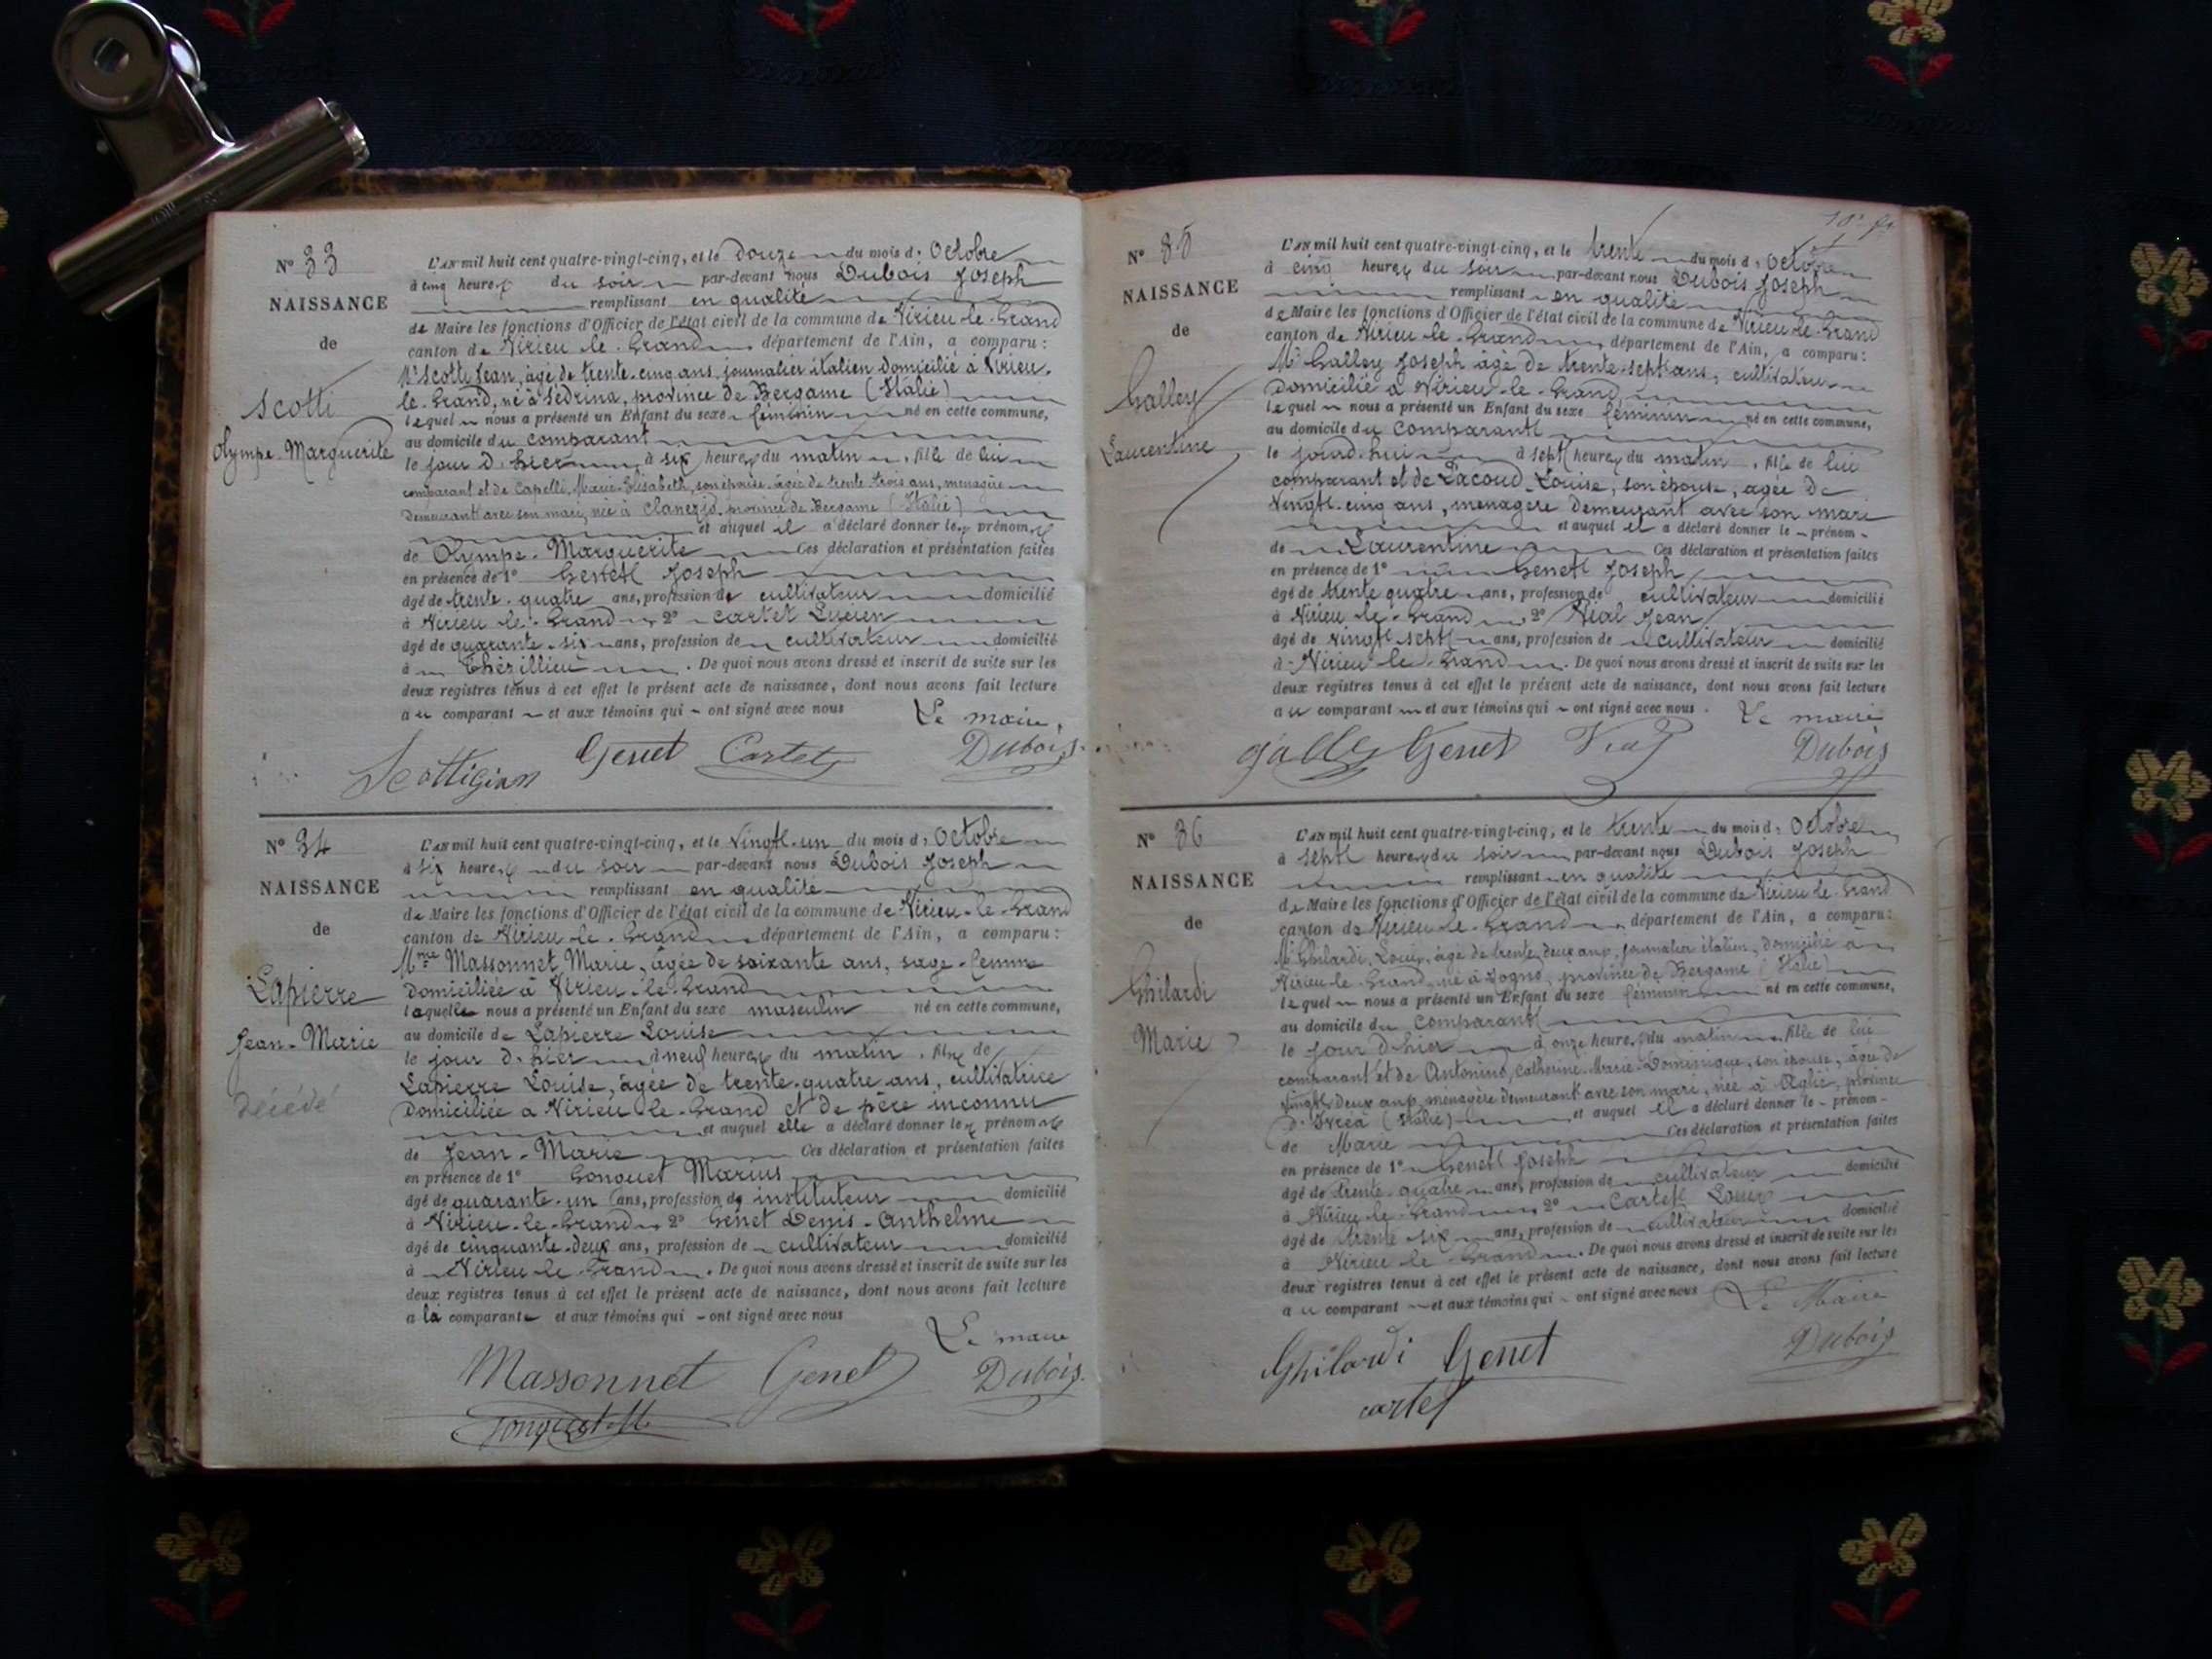 N° 33
NAISSANCE
de
Scotti
Olympe-Marguerite
L'AN mil huit cent quatre-vingt-cinq, et le douze du mois d'Octobre
à cinq heures du soir par-devant nous Dubois Joseph
remplissant en qualité
de Maire les fonctions d'Officier de l'état civil de la commune de Virieu-le-Grand
canton de Virieu-le-Grand département de l'Ain, a comparu:
Mr Scotti Jean, âgé de trente-cinq ans, journalier italien domicilié à Virieu-
le-Grand, né à Sedrina, province de Bergame (Italie)
lequel nous a présenté un Enfant du sexe féminin né en cette commune,
au domicile du comparant
le jour d'hier à six heures du matin, fille de lui
comparant et de Capelli, Marie-Elisabeth, son épouse, âgée de trente-trois ans, ménagère
demeurant avec son mari, née à Clanezzo, province de Bergame (Italie)
et auquel il a déclaré donner les prénoms
de Olympe-Marguerite Ces déclaration et présentation faites
en présence de 1° Genet Joseph
âgé de trente-quatre ans, profession de cultivateur domicilié
à Virieu-le-Grand 2° Cartet Lucien
âgé de quarante-six ans, profession de cultivateur domicilié
à Thézillieu. De quoi nous avons dressé et inscrit de suite sur les
deux registres tenus à cet effet le présent acte de naissance, dont nous avons fait lecture
au comparant et aux témoins qui ont signé avec nous
Le maire,
Scottigian Genet Cartet Dubois
N° 34
NAISSANCE
de
Lapierre
Jean-Marie
décédé
L'AN mil huit cent quatre-vingt-cinq, et le vingt-un du mois d'Octobre
à six heures du soir par-devant nous Dubois Joseph
remplissant en qualité
de Maire les fonctions d'Officier de l'état civil de la commune de Virieu-le-Grand
canton de Virieu-le-Grand département de l'Ain, a comparu:
Mme Massonnet Marie, âgée de soixante ans, sage-femme
domiciliée à Virieu-le-Grand
laquelle nous a présenté un Enfant du sexe masculin né en cette commune,
au domicile de Lapierre Louise
le jour d'hier à neuf heures du matin, fils de
Lapierre Louise, âgée de trente-quatre ans, cultivatrice
domiciliée à Virieu-le-Grand et de père inconnu
et auquel elle a déclaré donner les prénoms
de Jean-Marie Ces déclaration et présentation faites
en présence de 1° Gonguet Marius
âgé de quarante-un ans, profession de instituteur domicilié
à Virieu-le-Grand 2° Genet Denis-Anthelme
âgé de cinquante-deux ans, profession de cultivateur domicilié
à Virieu-le-Grand. De quoi nous avons dressé et inscrit de suite sur les
deux registres tenus à cet effet le présent acte de naissance, dont nous avons fait lecture
a la comparante et aux témoins qui ont signé avec nous
Le maire
Massonnet Genet Dubois
N° 35
NAISSANCE
de
Galley
Laurentine
L'AN mil huit cent quatre-vingt-cinq, et le trente du mois d'Octobre
à cinq heures du soir par-devant nous Dubois Joseph
remplissant en qualité
de Maire les fonctions d'Officier de l'état civil de la commune de Virieu-le-Grand
canton de Virieu-le-Grand département de l'Ain, a comparu:
Mr Galley Joseph âgé de trente-sept ans, cultivateur
domicilié à Virieu-le-Grand
lequel nous a présenté un Enfant du sexe féminin né en cette commune,
au domicile du comparant
le jourd'hui à sept heures du matin, fille de lui
comparant et de Lacoud Louise, son épouse, agée de
vingt-cinq ans, menagere demeurant avec son mari
et auquel il a déclaré donner le prénom
de Laurentine Ces déclaration et présentation faites
en présence de 1° Genet Joseph
âgé de trente quatre ans, profession de cultivateur domicilié
à Virieu-le-Grand 2° Vial Jean
âgé de vingt sept ans, profession de cultivateur domicilié
à Virieu-le-Grand. De quoi nous avons dressé et inscrit de suite sur les
deux registres tenus à cet effet le présent acte de naissance, dont nous avons fait lecture
au comparant et aux témoins qui ont signé avec nous. Le maire
Galley Genet Vial Dubois
N° 36
NAISSANCE
de
Ghilardi
Marie
L'AN mil huit cent quatre-vingt-cinq, et le trente du mois d'Octobre
à sept heures du soir par-devant nous Dubois Joseph
remplissant en qualité
de Maire les fonctions d'Officier de l'état civil de la commune de Virieu-le-Grand
canton de Virieu-le-Grand département de l'Ain, a comparu:
Mr Ghilardi, Louis, âgé de trente-deux ans, journalier italien, domicilié à
Virieu-le-Grand, né à Zogno, province de Bergame (Italie)
lequel nous a présenté un Enfant du sexe féminin né en cette commune,
au domicile du comparant
le jour d'hier à onze heures du matin fille de lui
comparant et de Antonino, Catherine-Marie-Dominique, son épouse, âgée de
vingt-deux ans ménagère demeurant avec son mari, née à Aglié, province
d'Ivréa (Italie) et auquel il a déclaré donner le prénom
de Marie Ces déclaration et présentation faites
en présence de 1° Genet Joseph
âgé de trente-quatre ans, profession de cultivateur domicilié
à Virieu-le-Grand 2° Cartet Louis
âgé de trente-six ans, profession de cultivateur domicilié
à Virieu-le-Grand. De quoi nous avons dressé et inscrit de suite sur les
deux registres tenus à cet effet le présent acte de naissance, dont nous avons fait lecture
au comparant et aux témoins qui ont signé avec nous Le Maire
Ghilardi Genet Dubois
cartet